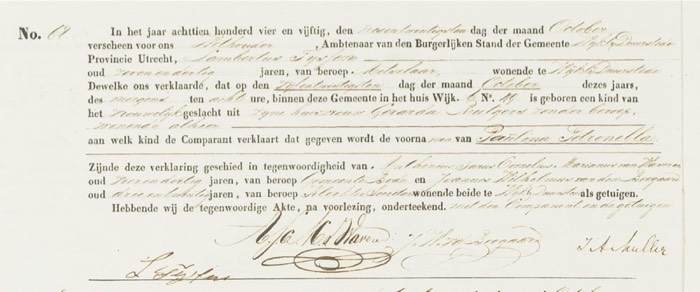 No. 69 In het jaar achttien honderd vier en vijftig, den zesentwintigsten dag der maand October
verscheen voor ons Wethouder, Ambtenaar van den Burgerlijken Stand der Gemeente Wijk bij Duurstede
Provincie Utrecht, Lambertus Fijsten
oud zevenendertig jaren, van beroep Metselaar, wonende te Wijk bij Duurstede
Dewelke ons verklaarde, dat op den vijfentwintigsten dag der maand October dezes jaars,
des morgens ten acht ure, binnen deze Gemeente in het huis Wijk No. is geboren een kind van
het vrouwelijk geslacht uit zijne huisvrouw Gerarda zonder beroep,
wonende alhier
aan welk kind de Comparant verklaart dat gegeven wordt de voorna men van Paulina Petronella
Zijnde deze verklaring geschied in tegenwoordigheid van Cornelis Marianus van
oud jaren, van beroep Gemeente Bode en Joannes Wilhelmus van den Boogaard
oud jaren, van beroep wonende beide te Wijk bij Duurstede als getuigen.
Hebbende wij de tegenwoordige Akte, na voorlezing, onderteekend. met den Comparant en de getuigen
J A Muller
L Fijsten